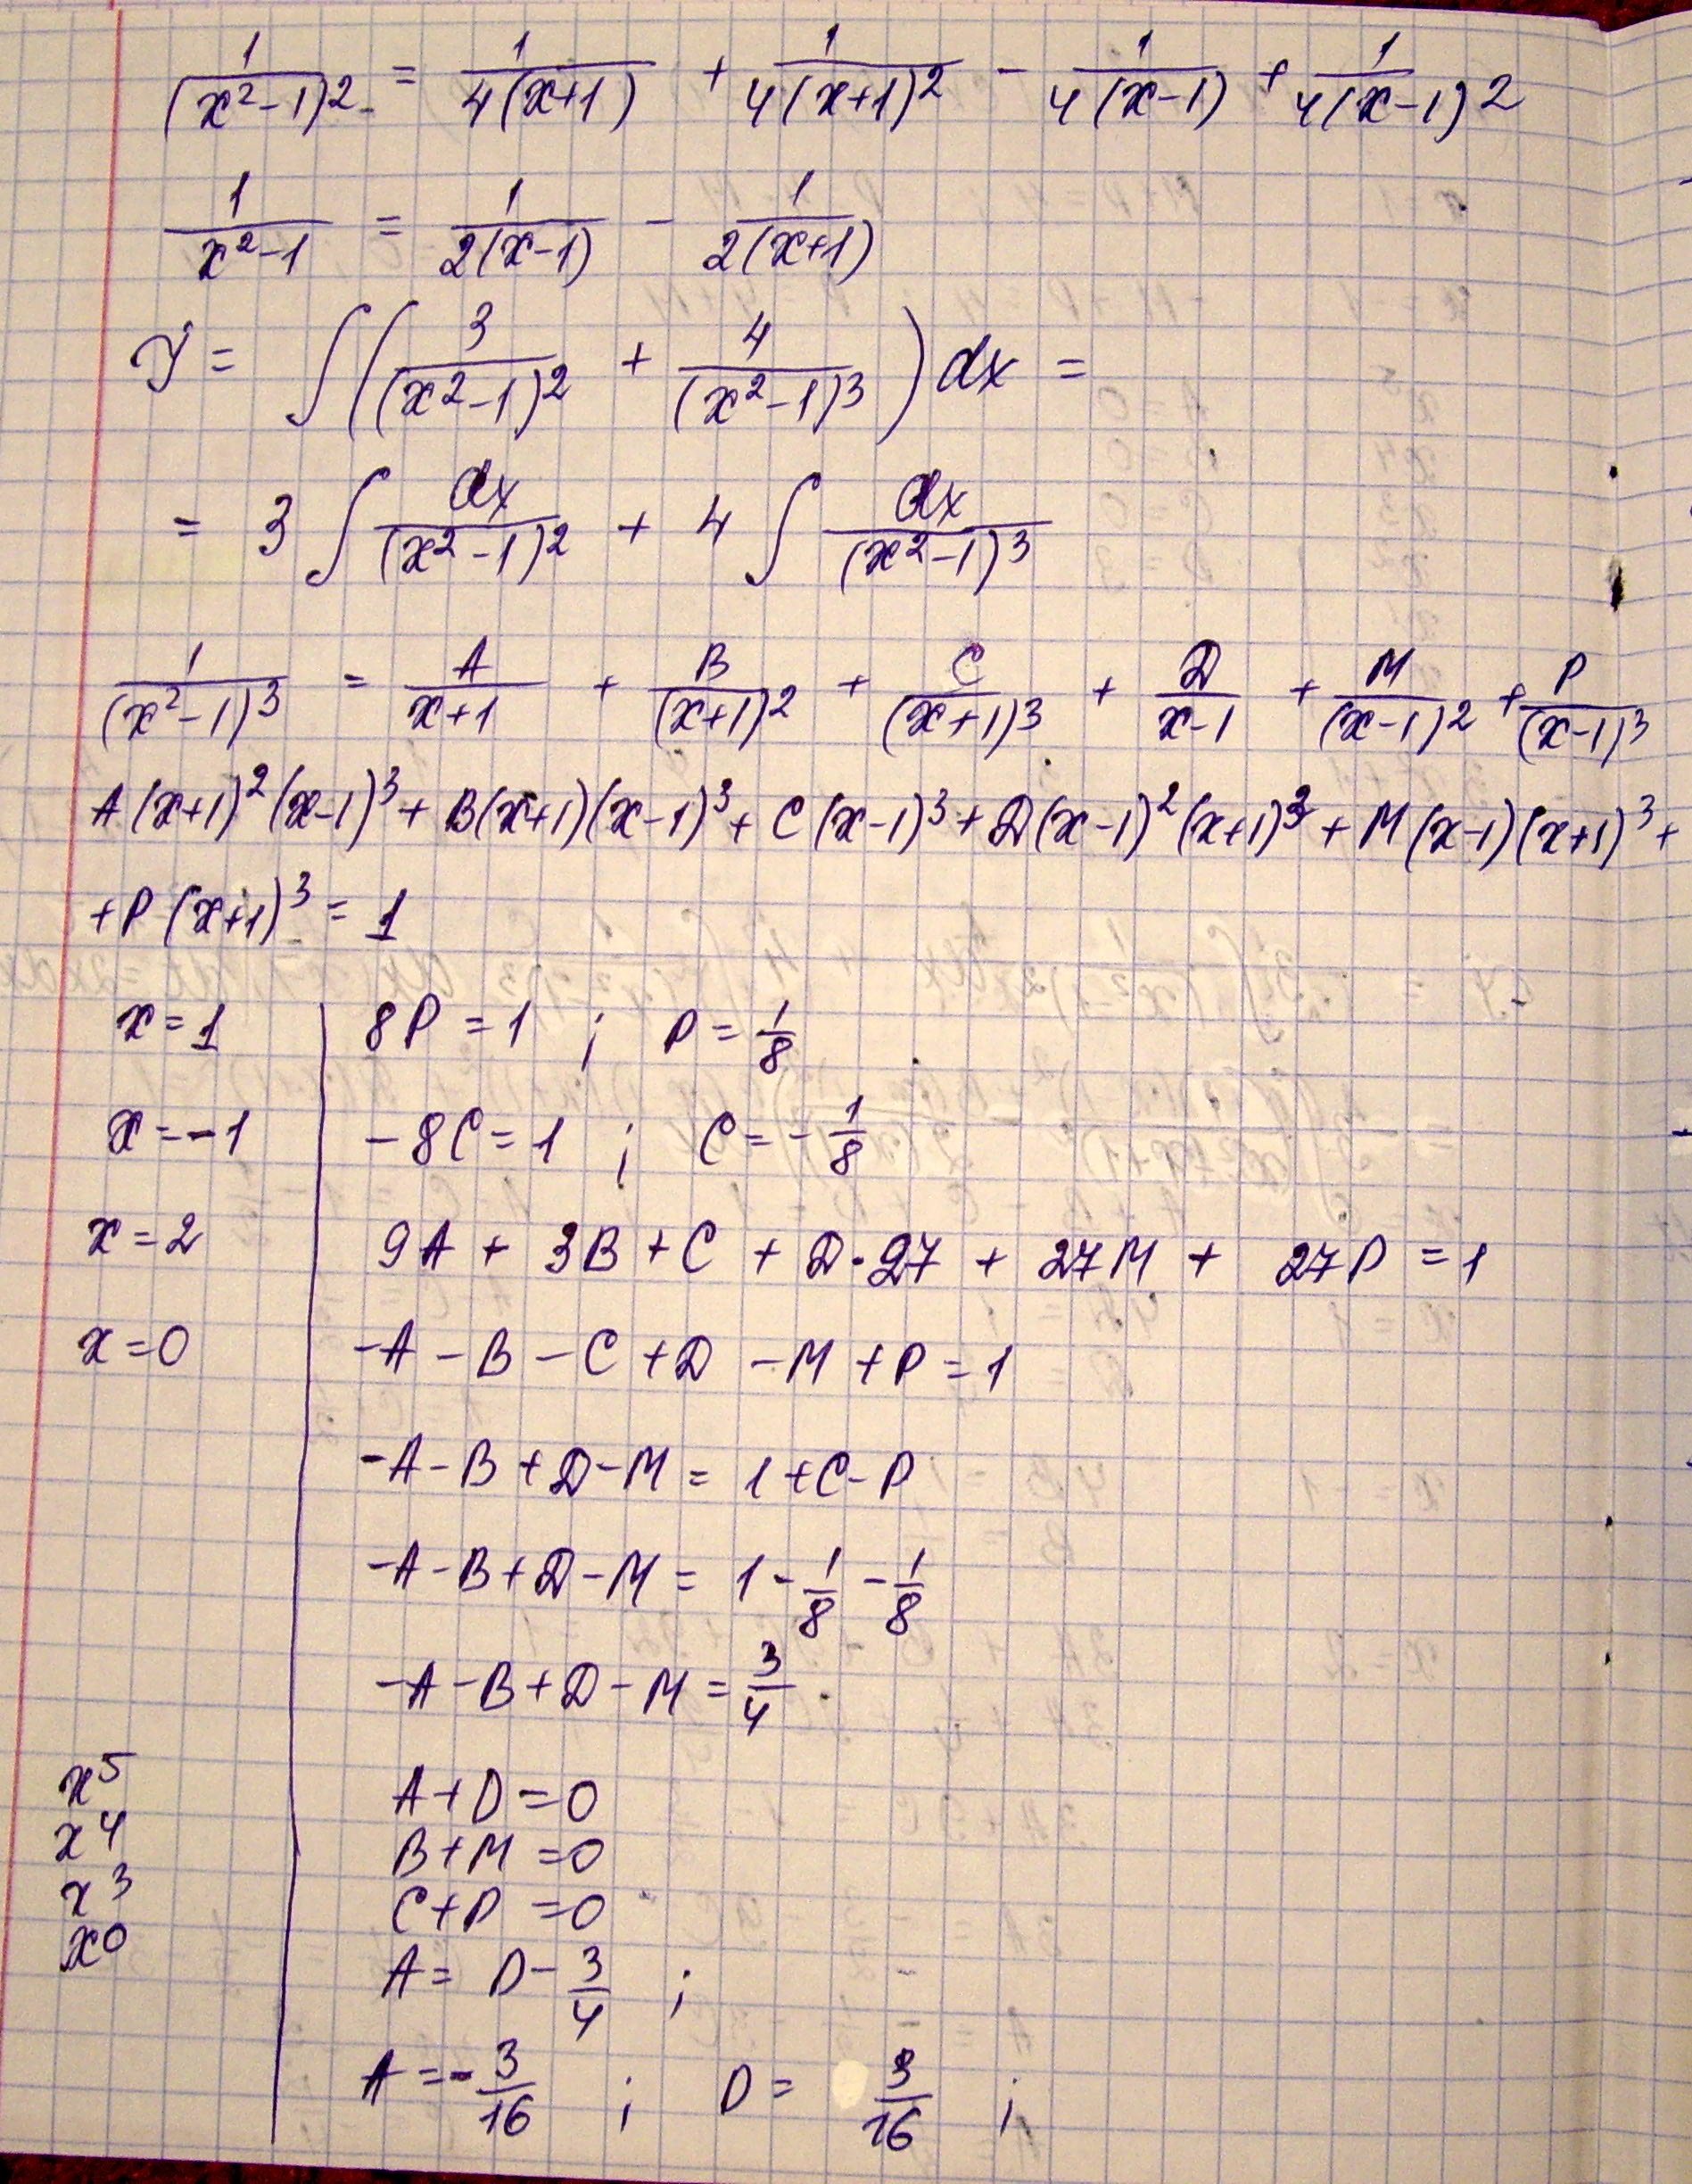 1/(x²-1)² = 1/4(x+1) + 1/4(x+1)² - 1/4(x-1) + 1/4(x-1)²
1/x²-1 = 1/2(x-1) - 1/2(x+1)
J = ∫(3/(x²-1)² + 4/(x²-1)³)dx =
= 3∫dx/(x²-1)² + 4∫dx/(x²-1)³
1/(x²-1)³ = A/x+1 + B/(x+1)² + C/(x+1)³ + D/x-1 + M/(x-1)² + P/(x-1)³
A(x+1)²(x-1)³ + B(x+1)(x-1)³ + C(x-1)³ + D(x-1)²(x+1)³ + M(x-1)(x+1)³ +
+P(x+1)³ = 1
x=1 8P = 1 ; P = 1/8
x=-1 -8C = 1 ; C = -1/8
x=2 9A + 3B + C + D·27 + 27M + 27P = 1
x=0 -A - B - C + D - M + P = 1
-A - B + D - M = 1 + C - P
-A - B + D - M = 1 - 1/8 - 1/8
-A - B + D - M = 3/4
x⁵ A + D = 0
x⁴ B + M = 0
x³ C + P = 0
x⁰ A = D - 3/4 ;
A = -3/16 ; D = 3/16 ;